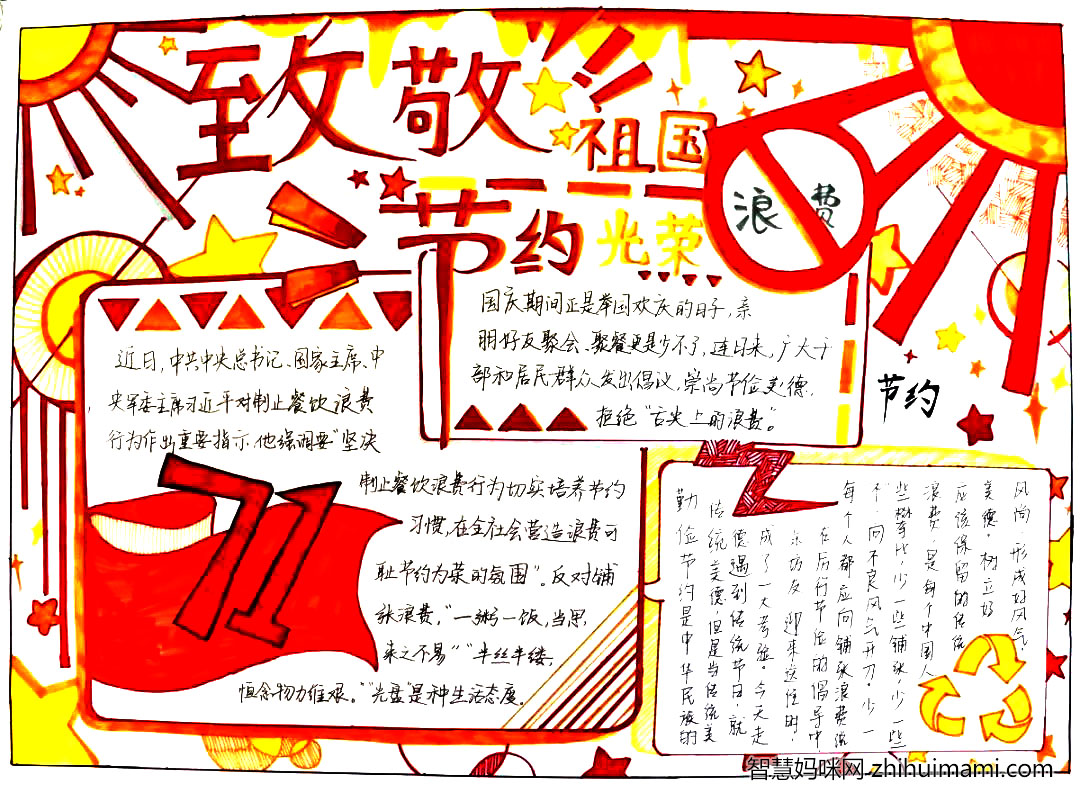 致敬
祖国
节约光荣
浪费
智慧妈咪网
zhihuimami.com
国庆期间正是举国欢庆的日子,亲
朋好友聚会、聚餐更是少不了,连日来,广大干
部和居民群众发出倡议,崇尚节俭美德,
拒绝“舌尖上的浪费”。
节约
近日,中共中央总书记、国家主席、中
央军委主席习近平对制止餐饮浪费
行为作出重要指示,他强调要“坚决
制止餐饮浪费行为切实培养节约
习惯,在全社会营造浪费可
耻节约为荣的氛围”。反对铺
张浪费,“一粥一饭,当思
来之不易”“半丝半缕,
恒念物力维艰。”“光盘”是种生活态度。
71
勤俭节约是中华民族的
传统美德,但是当传统美
德遇到传统节日,就
成了一大考验。今天走
亲访友,迎来送往时,
在厉行节俭的倡导中
每个人都应向铺张浪费说
不,向不良风气开刀,少一
些攀比,少一些铺张,少一些
浪费,是每个中国人
应该保留的传统
美德。树立好
风尚,形成好风气。
智慧妈咪网 zhihuimami.com